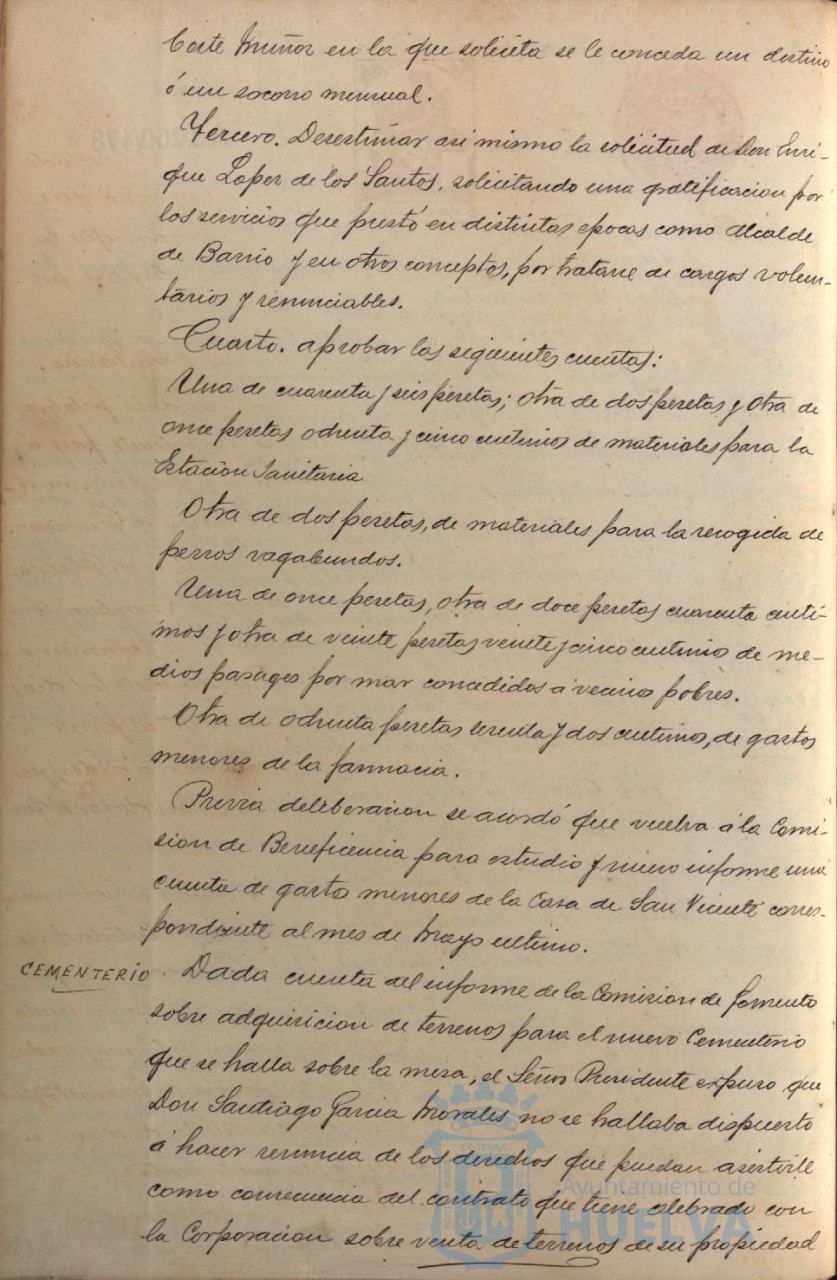 Corte Muñoz en la que solicita se le conceda un destino
ó un socorro mensual.
Tercero. Desestimar asi mismo la solicitud de Don Enri-
que Lopez de los Santos, solicitando una gratificacion por
los servicios que prestó en distintas epocas como Alcalde
de Barrio y en otros conceptos, por tratarse de cargos volun-
tarios y renunciables.
Cuarto. aprobar las siguientes cuentas:
Una de cuarenta y seis pesetas; otra de dos pesetas y otra de
once pesetas ochenta y cinco centimos de materiales para la
Estacion Sanitaria
Otra de dos pesetas, de materiales para la recogida de
perros vagabundos.
Una de once pesetas, otra de doce pesetas cuarenta centi-
mos y otra de veinte pesetas veinte y cinco centimos de me-
dios pasages por mar concedidos á vecinos pobres.
Otra de ochenta pesetas sesenta y dos centimos, de gastos
menores de la farmacia.
Previa deliberacion se acordó que vuelva á la Comi-
sion de Beneficencia para estudio y nuevo informe una
cuenta de gastos menores de la Casa de San Vicente corres-
pondiente al mes de Mayo ultimo.
CEMENTERIO
Dada cuenta del informe de la Comision de Fomento
sobre adquisicion de terrenos para el nuevo Cementerio
que se halla sobre la mesa, el Señor Presidente expuso que
Don Santiago Garcia Morales, no se hallaba dispuesto
á hacer renuncia de los derechos que puedan asistirle
como consecuencia del contrato que tiene celebrado con
la Corporacion sobre venta de terrenos de su propiedad
Ayuntamiento de
HUELVA